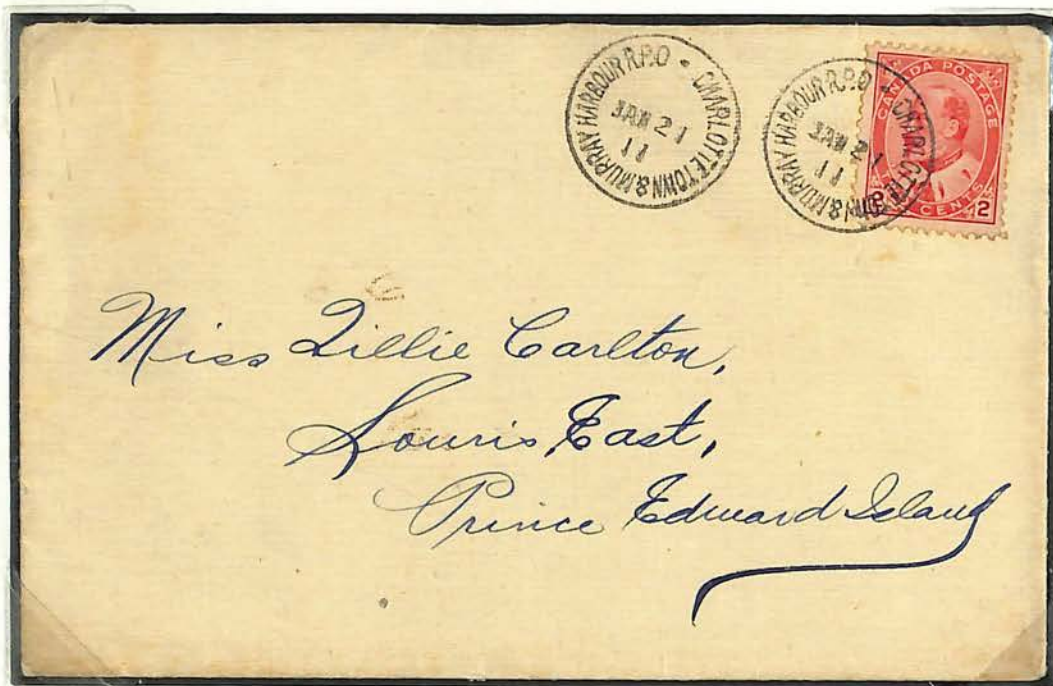 CHARLOTTETOWN & MURRAY HARBOUR R.P.O
JAN 21
11
CHARLOTTETOWN & MURRAY HARBOUR R.P.O
JAN 21
11
CANADA POSTAGE
2 CENTS 2
Miss Lillie Carlton,
Souris East,
Prince Edward Island